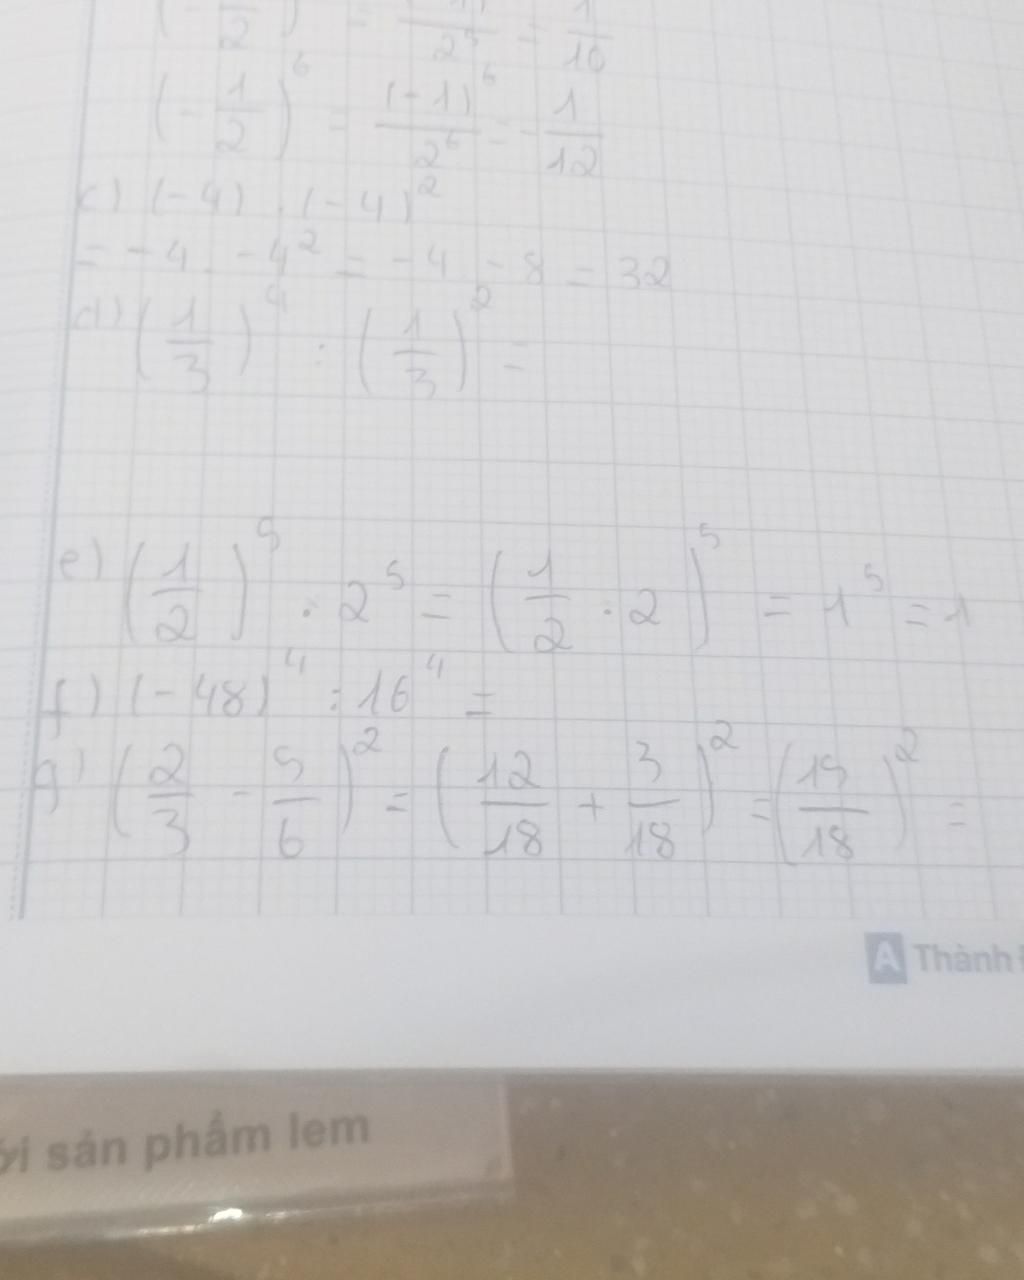 (-1/2) = (-1)/2⁵ = 1/10
(-1/2)⁶ = (-1)⁶/2⁶ = -1/12
c) (-4) . (-4)²
= -4 . -4² = -4 . -8 = 32
d) (1/3)⁴ : (1/3)² =
e) (1/2)⁵ . 2⁵ = (1/2 . 2)⁵ = 1⁵ = 1
f) (-48)⁴ : 16⁴ =
g) (2/3 - 5/6)² = (12/18 + 3/18)² = (15/18)² =
A Thành
ới sản phẩm lem